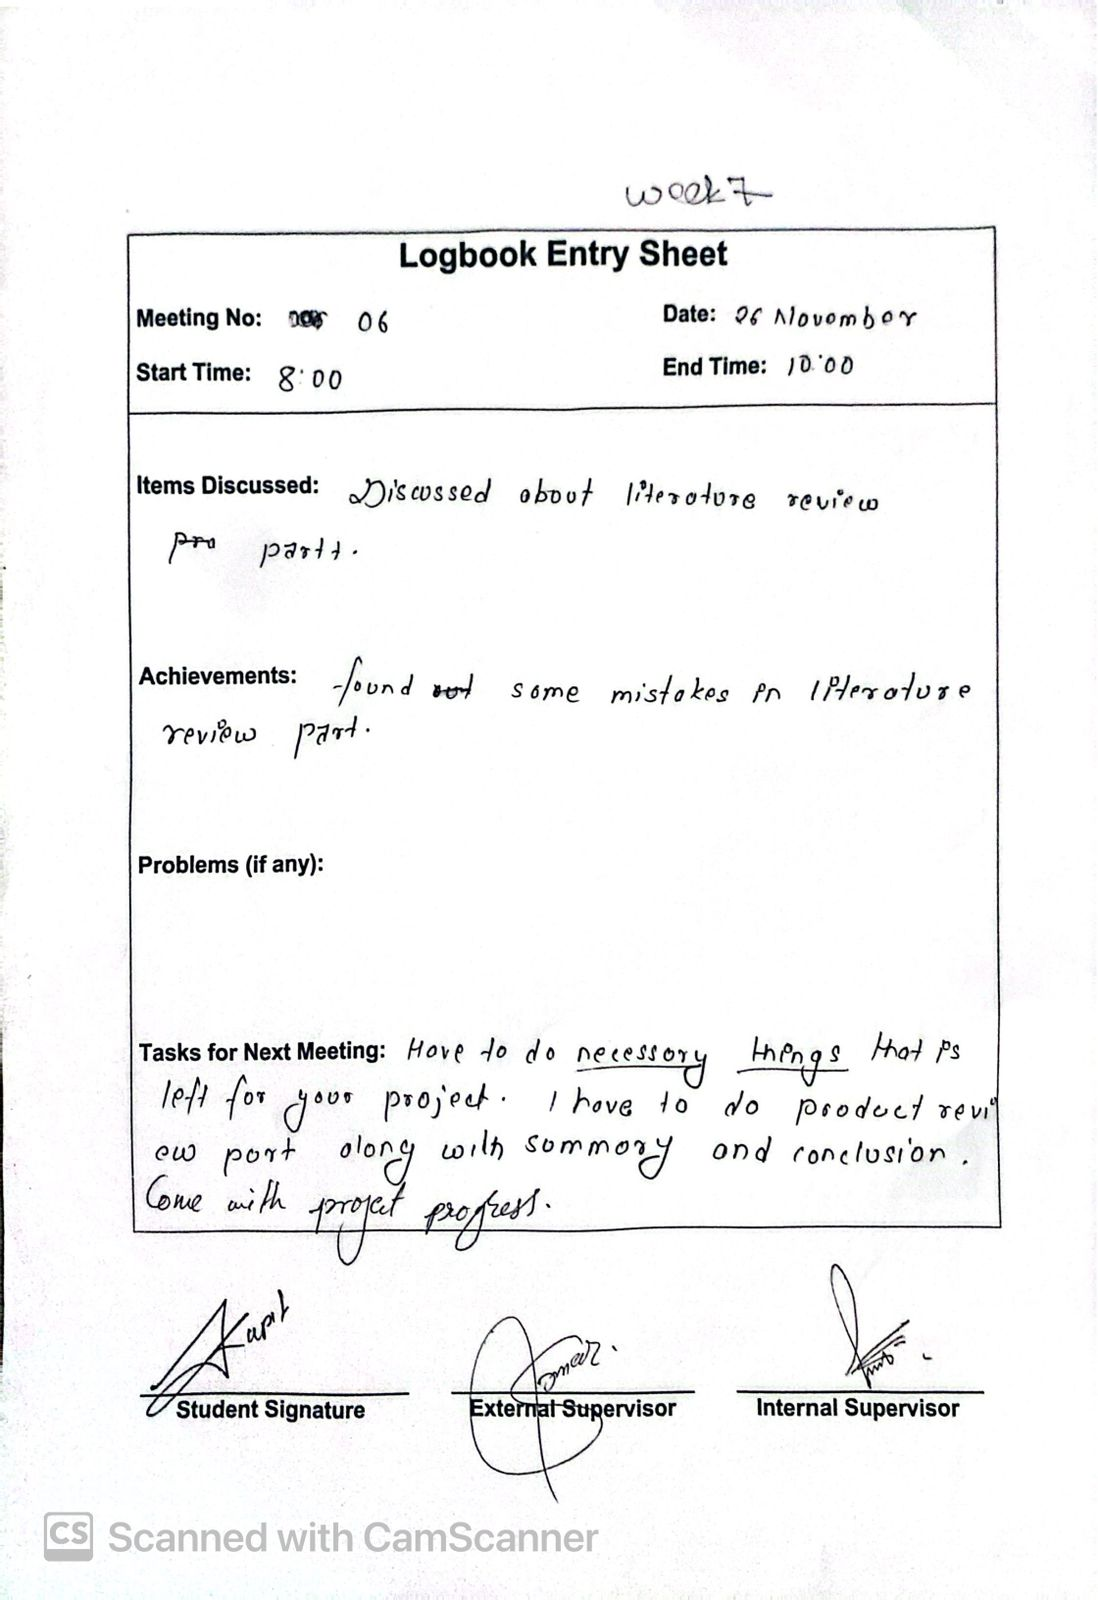 week 7
Logbook Entry Sheet
Meeting No: 06
Date: 26 November
Start Time: 8:00
End Time: 10:00
Items Discussed: Discussed about literature review
pro partt.
Achievements: found out some mistakes in literature
review part.
Problems (if any):
Tasks for Next Meeting: Have to do necessory things that is
left for your project. I have to do product revi
ew part along with summory and conclusion.
Come with projet progress.
Student Signature
External Supervisor
Internal Supervisor
CS Scanned with CamScanner